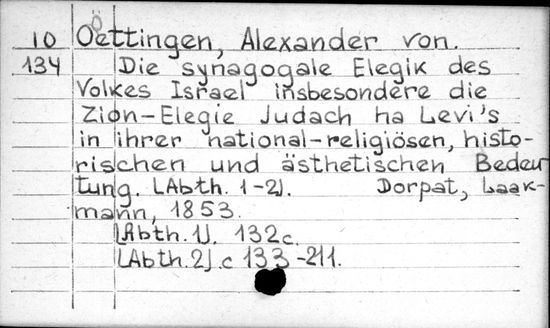 10 Oettingen, Alexander von.
134 Die synagogale Elegik des
Volkes Israel insbesondere die
Zion-Elegie Judach ha Levi's
in ihrer national-religiösen, histo-
rischen und ästhetischen Bedeu
tung. [Abth. 1-2]. Dorpat, Laak-
mann, 1853.
[Abth. 1]. 132c.
[Abth. 2]. c 133-211.